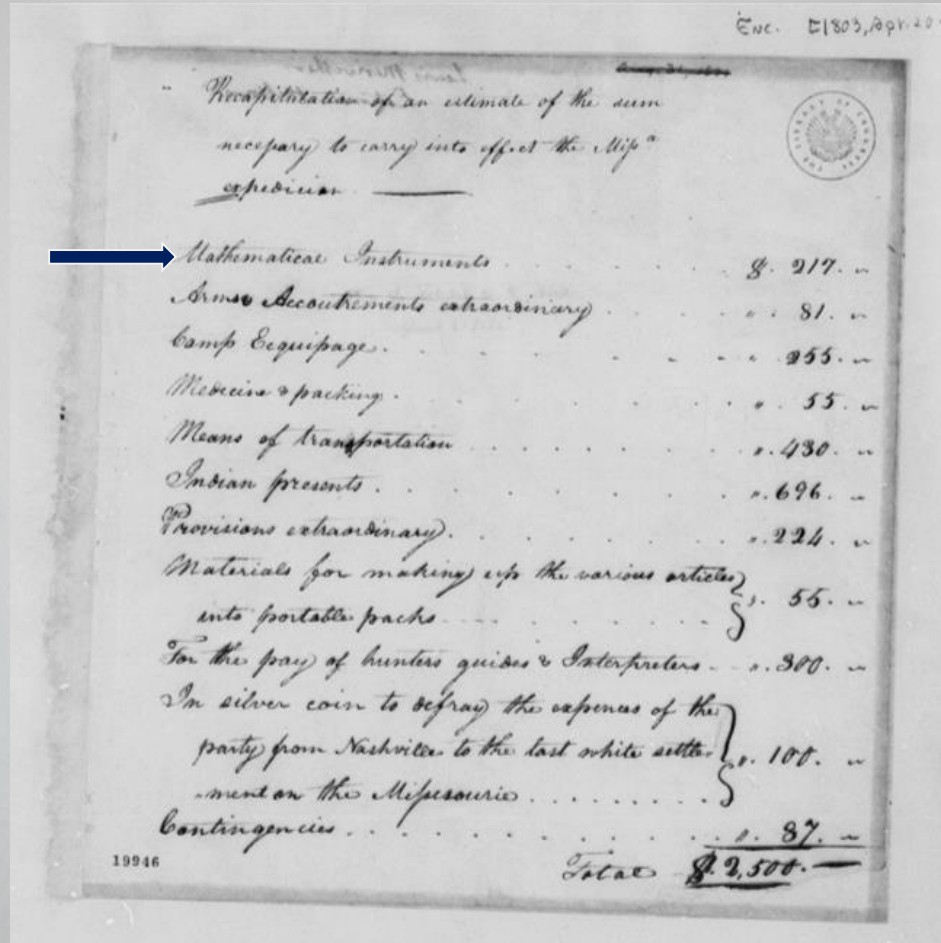 Enc. [1803, Apr. 20
Recapitulation of an estimate of the sum
necessary to carry into effect the Missᵃ
expedicion
Mathematical Instruments . . . . . . $. 217. "
Arms & Accoutrements extraordinary . . . . " . 81. "
Camp Ecquipage. . . . . . . . " . 255. "
Medicine & packing . . . . . . . " . 55. "
Means of transportation . . . . . . . ". 430. "
Indian presents . . . . . . . . ". 696. "
Provisions extraordinary. . . . . . . ". 224. "
Materials for making up the various articles
into portable packs . . . . . . . ". 55. "
For the pay of hunters guides & Interpreters - ". 300. "
In silver coin to defray the expences of the
party from Nashville to the last white settle-
-ment on the Missisourie . . . . . . . . ". 100. "
Contingencies . . . . . . . . . . ". 87. "
Total $. 2,500.
19946
THE LIBRARY OF CONGRESS